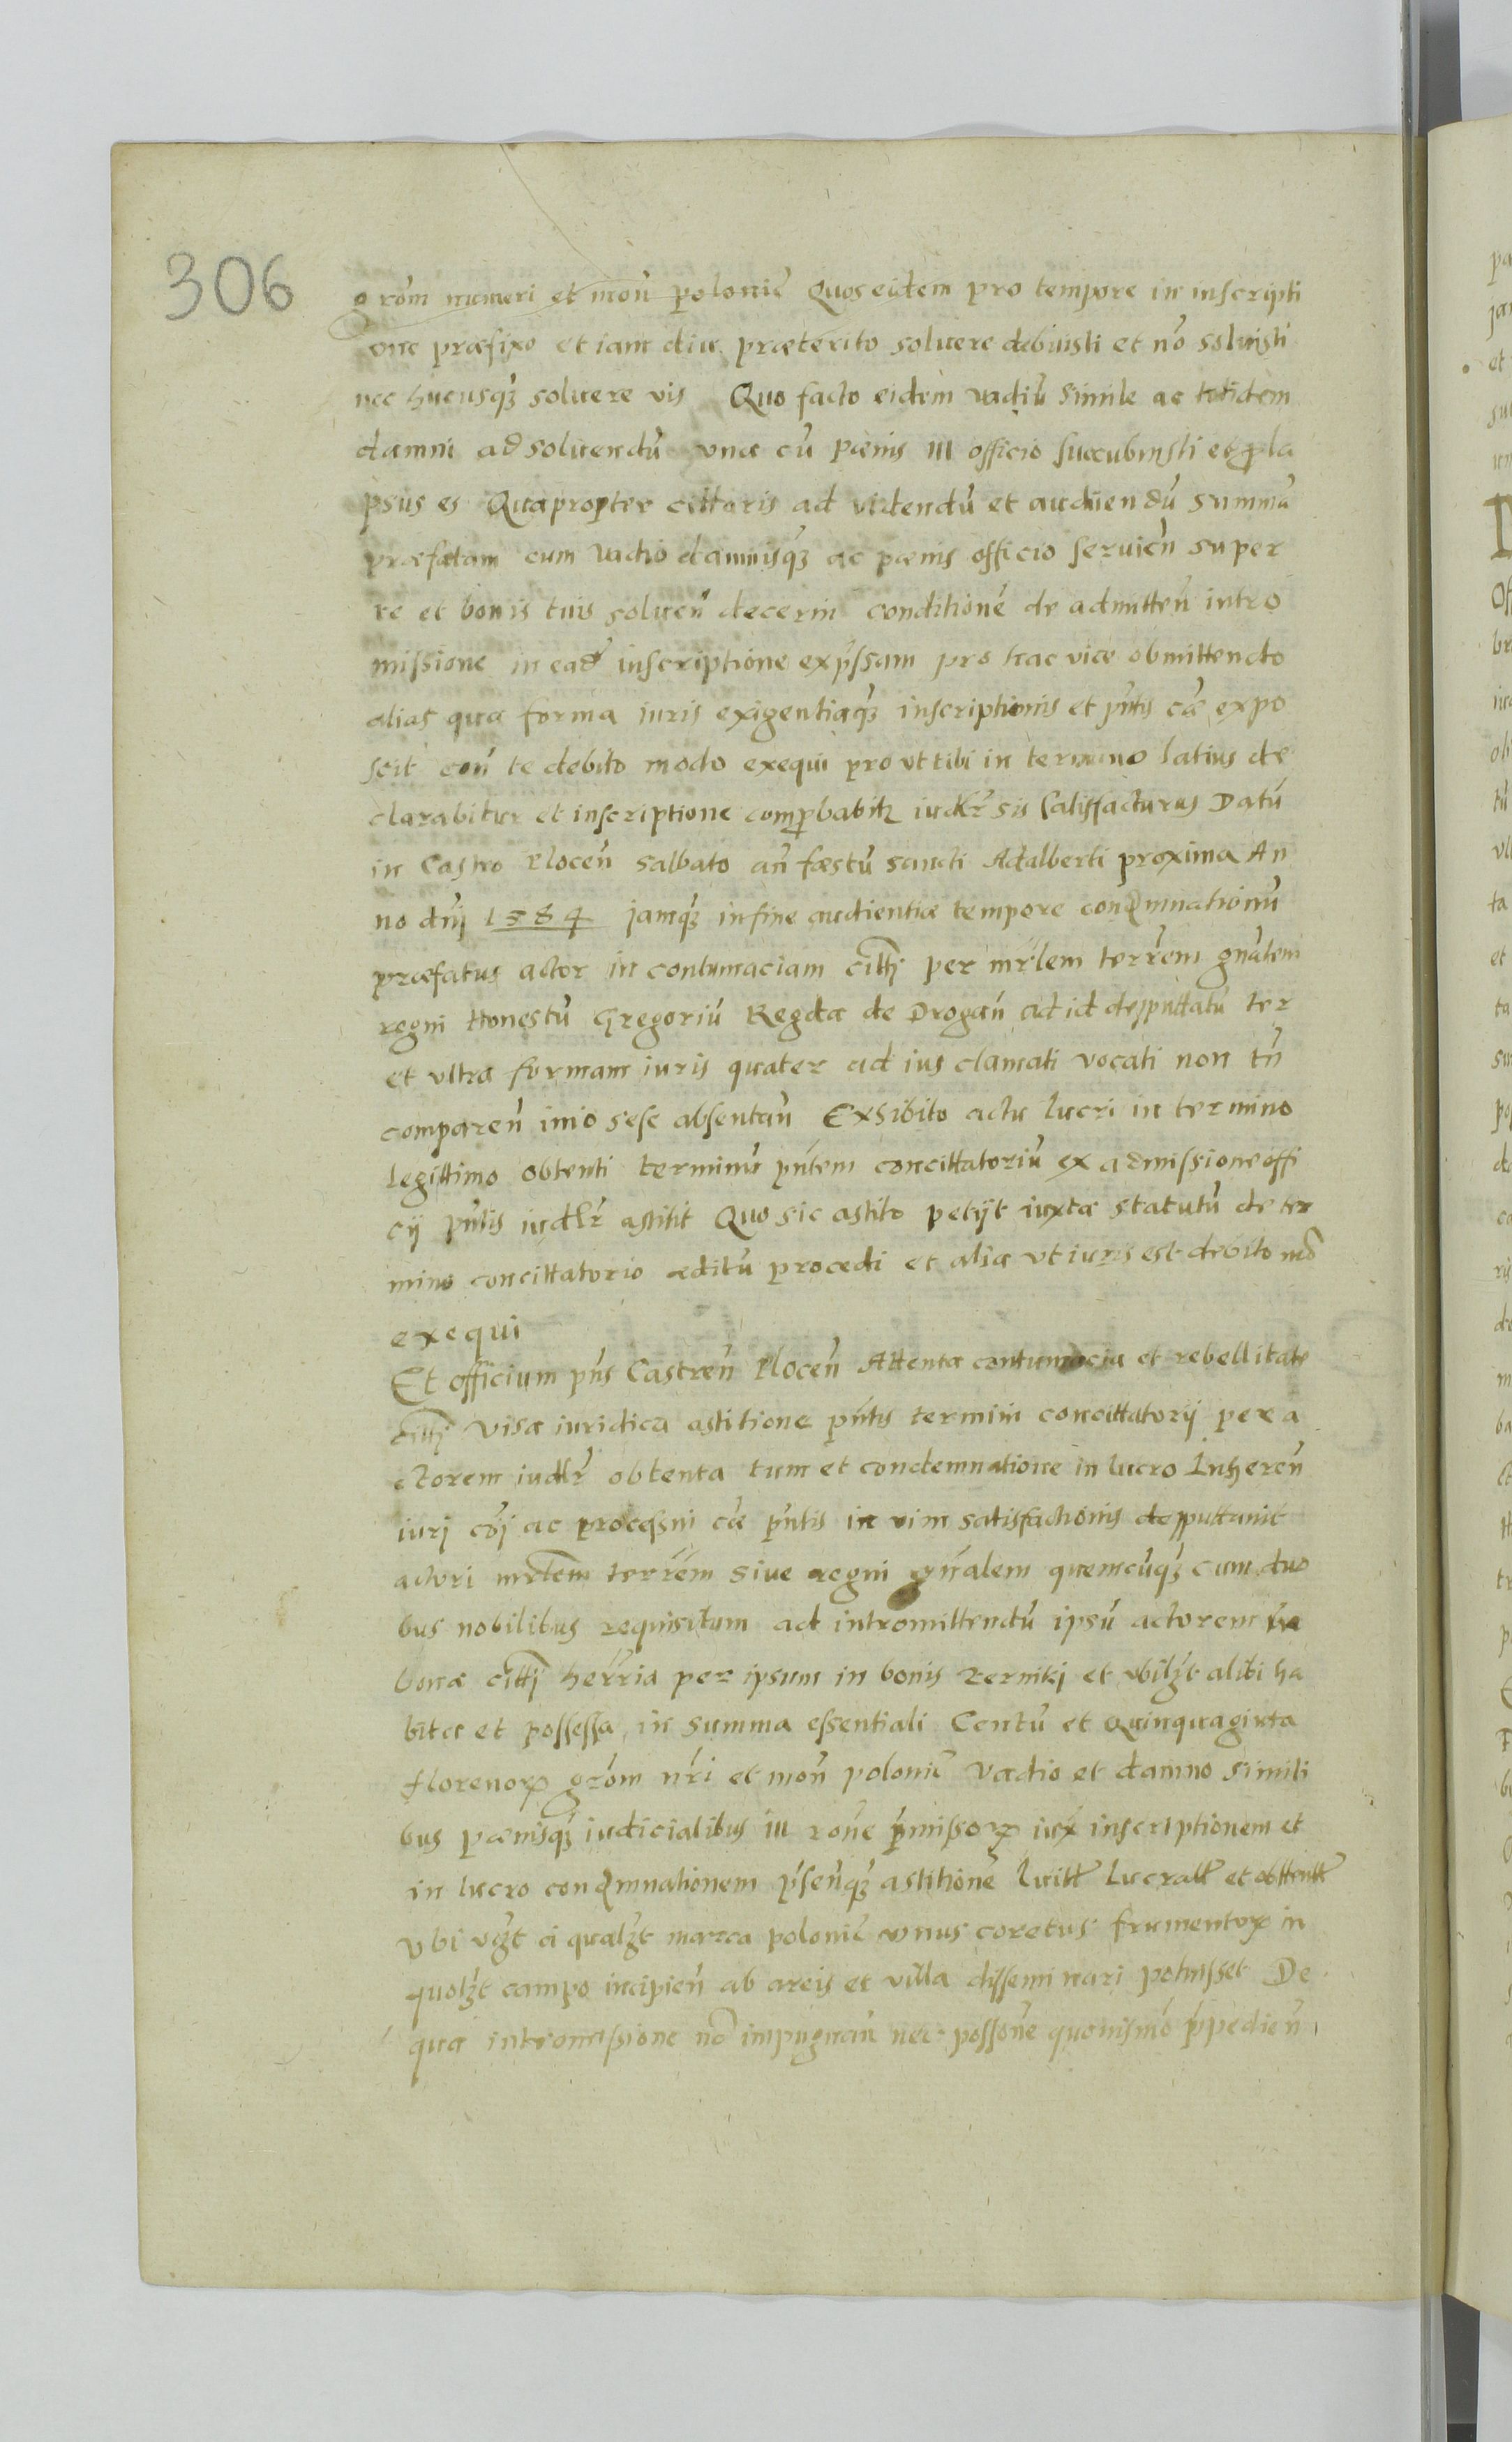 306
grom numeri et mon̄ polonic̄ Quos eidem pro tempore in inscripti
one præfixo et iam diu præterito soluere debuisti et nō soluisti
nec hucusq; soluere vis Quo facto eidem vadiū simile ac totidem
damni ad soluendū vna cū pœnis III officio succubuisti et prola
psus es Quapropter cittaris ad videndū et audiendū summā
præfatam cum vadio damnisq; ac pœnis officio seruien̄ super
re et bonis tuis soluen̄ decerni conditionē de admitten̄ intro
missione in ead inscriptione expssam pro hac vice obmittendo
alias qua forma iuris exigentiaq; inscriptionis et pntis cæ expo
scit con̄ te debito modo exequi prout tibi in termino latius de
clarabitur et inscriptione comprobabitr iudlr sis satisfacturus Datū
in Castro Plocen̄ sabbato an̄ fæstū sancti Adalberti proxima An
no dnij 1584 jamq; in fine audientiæ tempore condmnationū
præfatus actor in contumaciam citti per mrlem terrem gnalem
regni Honestū Gregoriū Regda de Drogan̄ ad id deputtatū ter
et vltra formam iuris quater ad ius clamati vocati non tn̄
comparen̄ imo sese absentan̄ Exhibito actu lucri in termino
legittimo obtenti terminū pntem concittatoriū ex admissione offi
cij pntis iudlr astitit Quo sic astito petijt iuxta statutū de ter
mino concittatorio æditū procedi et alia vt iuris est debito mō
exequi
Et officium pns Castren̄ Plocen̄ Attenta contumacia et rebellitate
citti visa iuridica astitione pntis termini concittatorij per a
ctorem iudlr obtenta tum et condemnatione in lucro Inheren̄
iurj cōj ac processui cæ pntis in vim satisfactionis deputtauit
actori mrlem terrem siue regni gnalem quemcūq; cum duo
bus nobilibus requisitum ad intromittendū ipsū actorem in
bona citti herria per ipsum in bonis Zerniki et vbilzt alibi ha
bita et possessa in summa essentiali Centū et Quinquaginta
florenorp grom nri et mon̄ polonic̄ vadio et damno simili
bus pœnisq; iudicialibus in rone pmissorp iux inscriptionem et
in lucro condmnationem psenq; astitionē luitt lucratt et obtentt
vbi vzt ei qualzt marca polonic̄ vnus coretus frumentorp in
quolzt campo incipien̄ ab areis et villa disseminari potuisset De
qua intromissione nō impugnan̄ nec possone quouismō ppedien̄